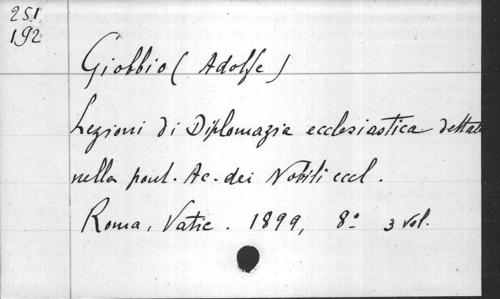 251
192
Giobbio (Adolfe)
Lezioni di Diplomazia ecclesiastica dettate
nella pont. Ac. dei Nobili eccl.
Roma, Vatic. 1899, 8° 3 vol.